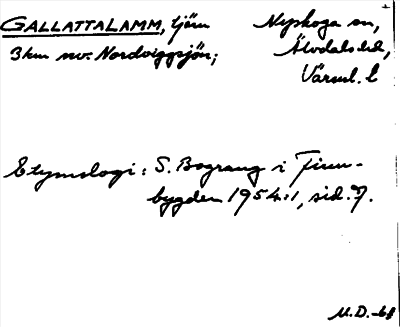 GALLATTALAMM, tjärn Nyskoga sn,
3 km nv. Nordviggsjön; Älvdals hd,
Värml. l
Etymologi: S. Bograng i Finn-
bygden 1954:1, sid. 7.
M.D. -68